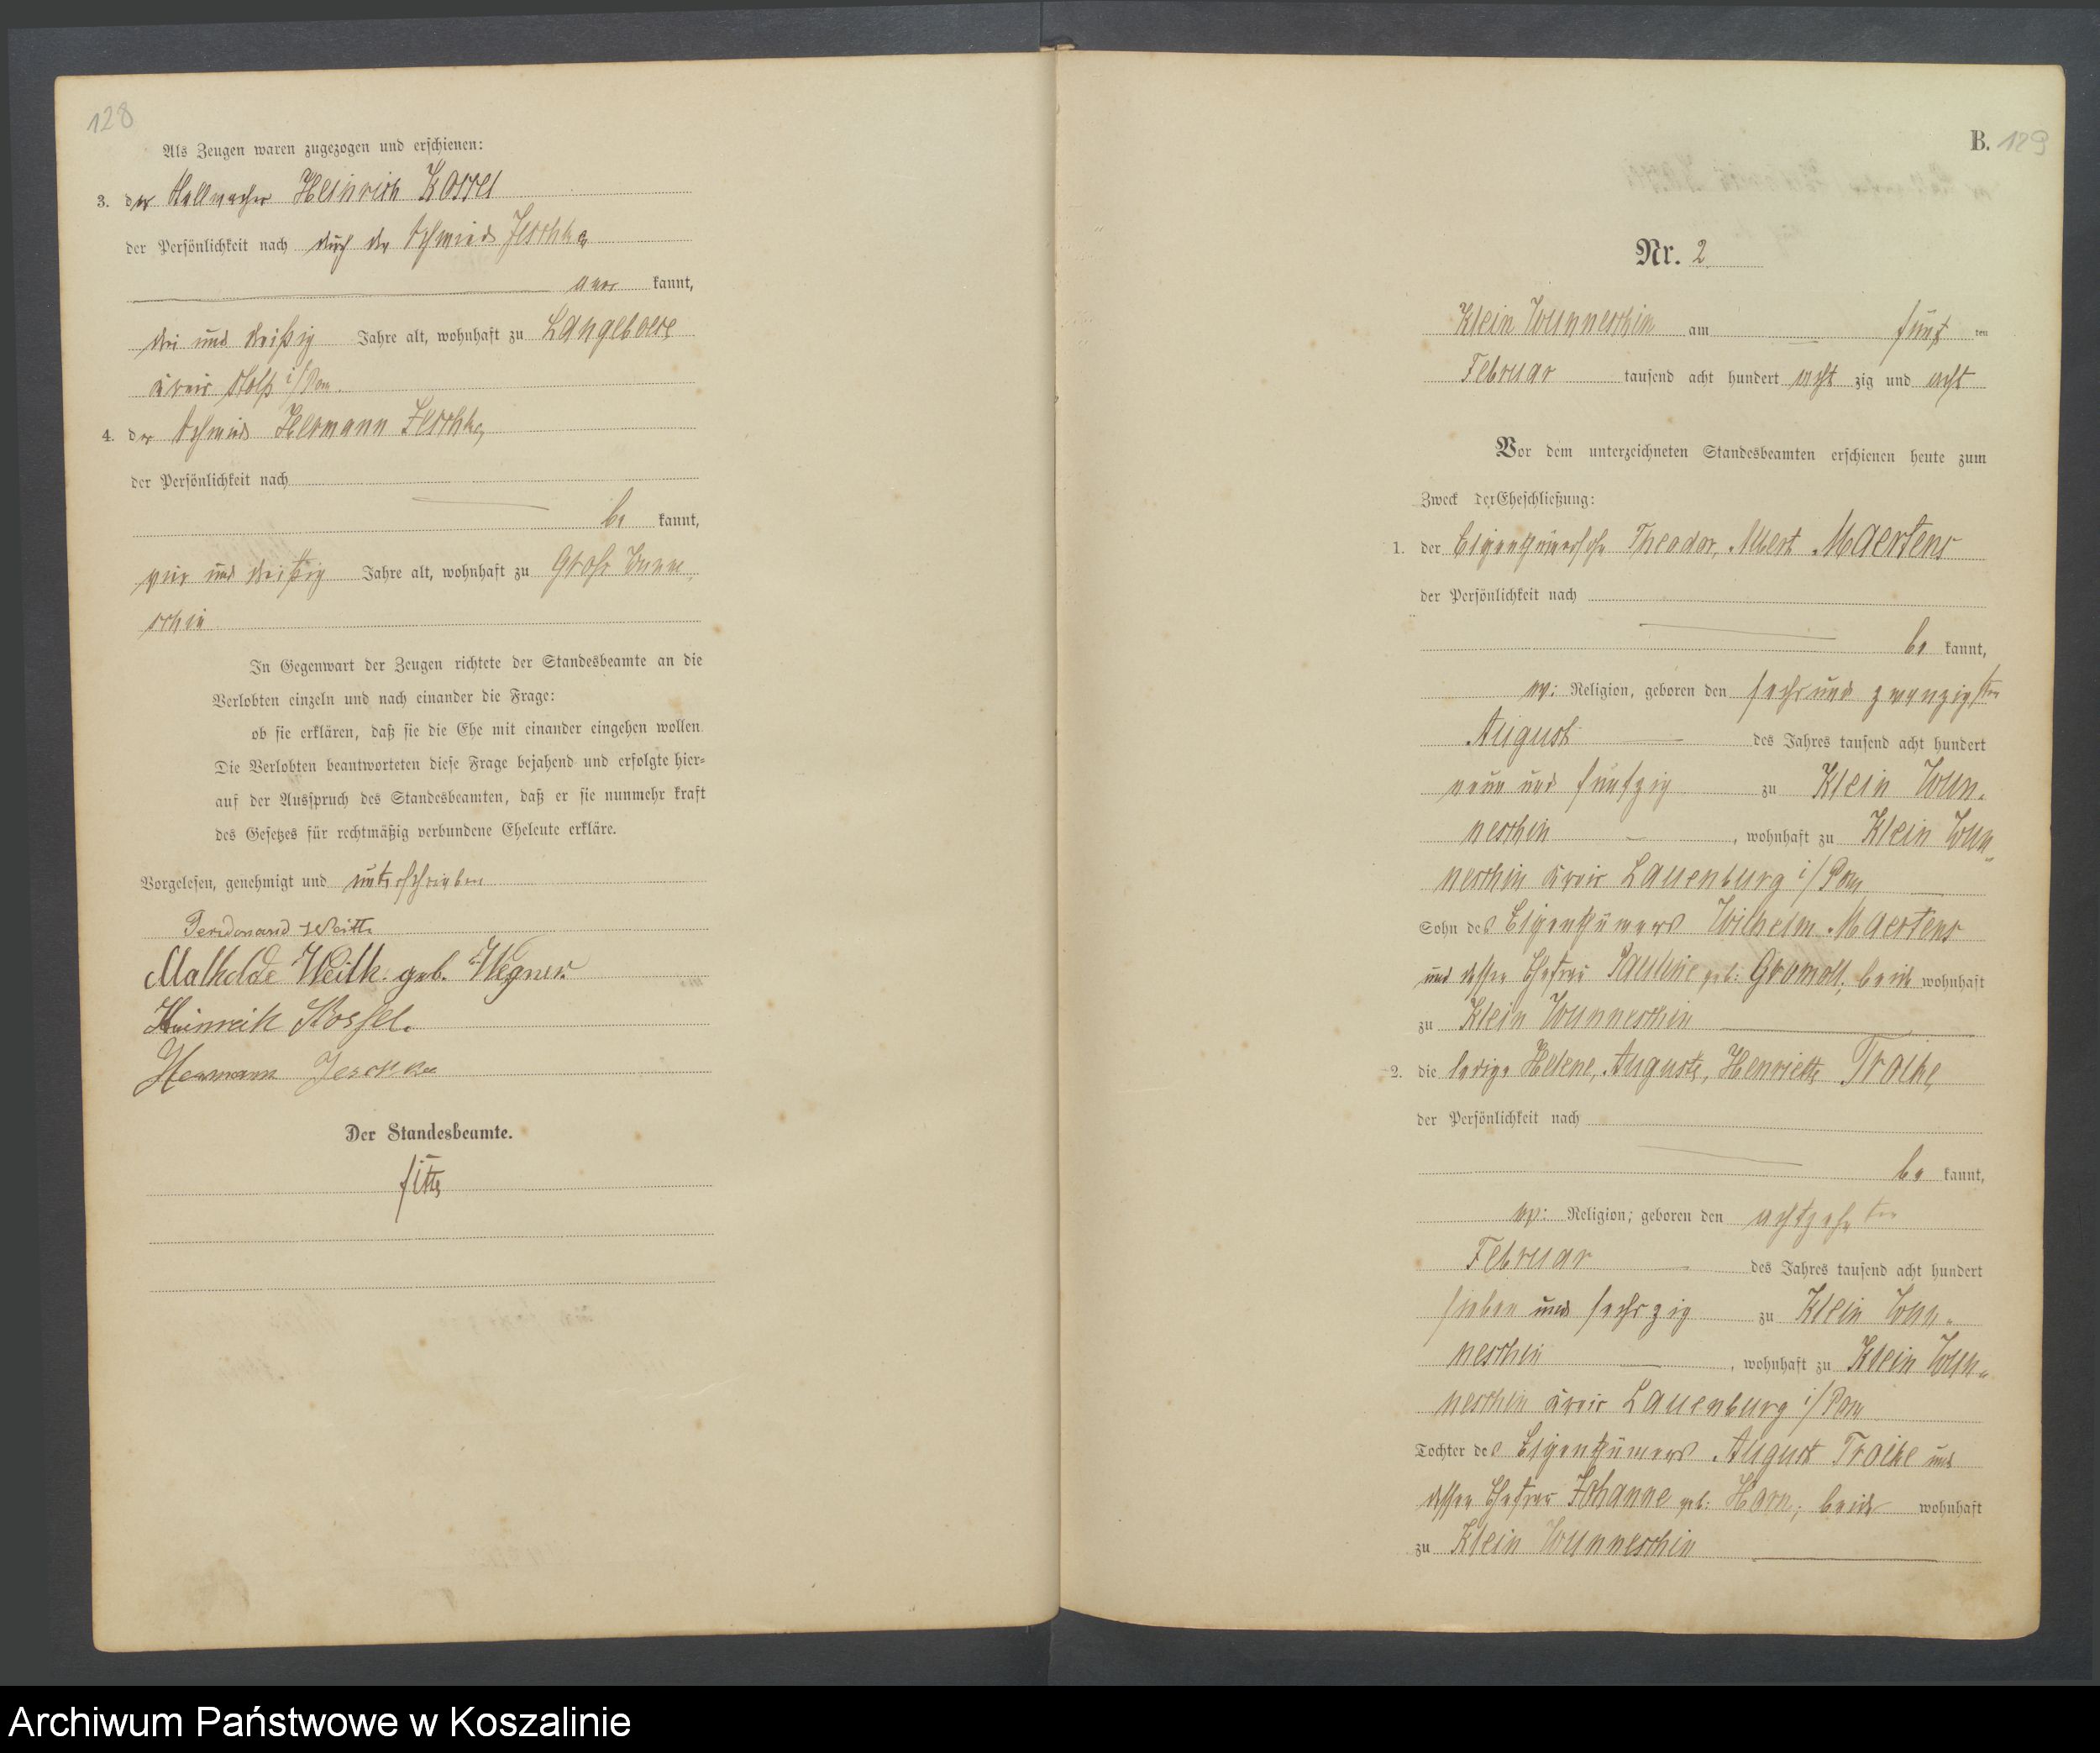 128
Als Zeugen waren zugezogen und erschienen:
3. der Stellmacher Heinrich Kossel
der Persönlichkeit nach durch den Schmied Jeschke
aner kannt,
drei und dreißig Jahre alt, wohnhaft zu Langeboese
Kreis Stolp i/Pom.
4. der Schmied Hermann Jeschke
der Persönlichkeit nach
be kannt,
vier und dreißig Jahre alt, wohnhaft zu Groß Wunne
schin
In Gegenwart der Zeugen richtete der Standesbeamte an die
Verlobten einzeln und nach einander die Frage:
ob sie erklären, daß sie die Ehe mit einander eingehen wollen.
Die Verlobten beantworteten diese Frage bejahend und erfolgte hier=
auf der Ausspruch des Standesbeamten, daß er sie nunmehr kraft
des Gesetzes für rechtmäßig verbundene Eheleute erkläre.
Vorgelesen, genehmigt und unterschrieben
Ferdinand
Mathilde geb. Wegner
Heinrich Kossel.
Hermann Jeschke
Der Standesbeamte.
B. 129
Nr. 2
Klein Wunneschin am fünf ten
Februar tausend acht hundert acht zig und acht
Vor dem unterzeichneten Standesbeamten erschienen heute zum
Zweck der Eheschließung:
1. der Theodor, Albert Maertens
der Persönlichkeit nach
be kannt,
ev: Religion, geboren den sechs und zwanzigsten
August des Jahres tausend acht hundert
neun und fünfzig zu Klein Wun-
neschin, wohnhaft zu Klein Wun-
neschin Kreis Lauenburg i/Pom
Sohn des Eigenthümers Wilhelm Maertens
und dessen Ehefrau Pauline geb: Gromoll, beide wohnhaft
zu Klein Wunneschin
2. die ledige Helene, Auguste, Henriette Troike
der Persönlichkeit nach
be kannt,
ev: Religion, geboren den achtzehnten
Februar des Jahres tausend acht hundert
sieben und sechszig zu Klein Wun-
neschin, wohnhaft zu Klein Wun-
neschin Kreis Lauenburg i/Pom
Tochter des Eigenthümers August Troike und
dessen Ehefrau Johanne geb: Horn, beide wohnhaft
zu Klein Wunneschin
Archiwum Państwowe w Koszalinie